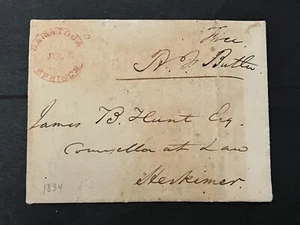 SARATOGA
SPRINGS
Free
B. F. Butler
James B. Hunt Esq.
Counsellor at Law
Herkimer.
1834